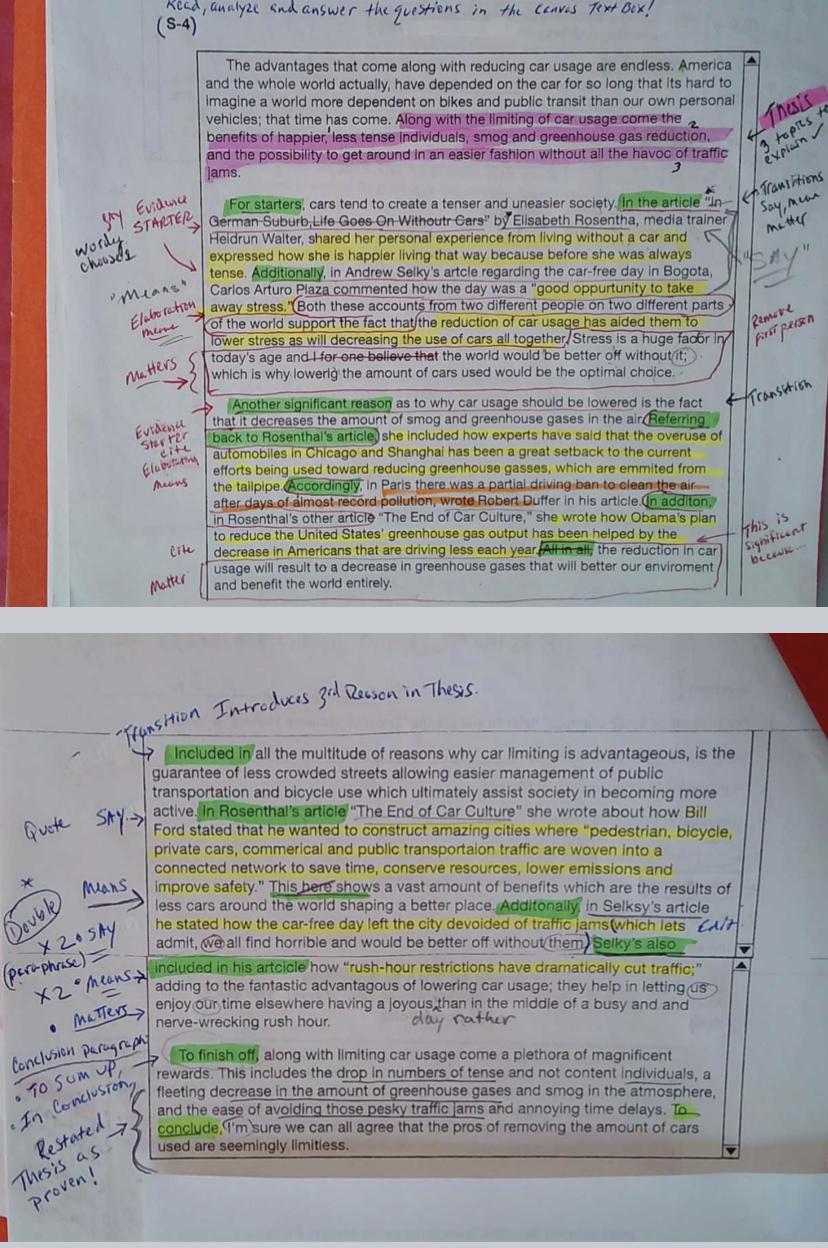 Read, analyze and answer the questions in the Canvas Text Box!
(S-4)
The advantages that come along with reducing car usage are endless. America
and the whole world actually, have depended on the car for so long that its hard to
imagine a world more dependent on bikes and public transit than our own personal
vehicles; that time has come. Along with the limiting of car usage come the
benefits of happier, less tense individuals, smog and greenhouse gas reduction,
and the possibility to get around in an easier fashion without all the havoc of traffic
jams.
2
3
Thesis
3 topics to
explain ✓
For starters, cars tend to create a tenser and uneasier society. In the article "In
German Suburb,Life Goes On Withoutr Cars" by Elisabeth Rosentha, media trainer
Heidrun Walter, shared her personal experience from living without a car and
expressed how she is happier living that way because before she was always
tense. Additionally, in Andrew Selky's artcle regarding the car-free day in Bogota,
Carlos Arturo Plaza commented how the day was a "good oppurtunity to take
away stress." Both these accounts from two different people on two different parts
of the world support the fact that the reduction of car usage has aided them to
lower stress as will decreasing the use of cars all together. Stress is a huge facor in
today's age and I for one believe that the world would be better off without it;
which is why lowerig the amount of cars used would be the optimal choice.
Evidence
STARTER
wordy
"Means"
Elaboration
means
Matters
Transitions
Say, Mean
matter
"SAY"
Remove
first person
Another significant reason as to why car usage should be lowered is the fact
that it decreases the amount of smog and greenhouse gases in the air. Referring
back to Rosenthal's article, she included how experts have said that the overuse of
automobiles in Chicago and Shanghai has been a great setback to the current
efforts being used toward reducing greenhouse gasses, which are emmited from
the tailpipe. Accordingly, in Paris there was a partial driving ban to clean the air
after days of almost record pollution, wrote Robert Duffer in his article. In additon,
in Rosenthal's other article "The End of Car Culture," she wrote how Obama's plan
to reduce the United States' greenhouse gas output has been helped by the
decrease in Americans that are driving less each year. All in all, the reduction in car
usage will result to a decrease in greenhouse gases that will better our enviroment
and benefit the world entirely.
Evidence
Starter
cite
Elaborating
means
Cite
Matter
Transition
This is
significant
because...
Transition Introduces 3rd Reason in Thesis.
Included in all the multitude of reasons why car limiting is advantageous, is the
guarantee of less crowded streets allowing easier management of public
transportation and bicycle use which ultimately assist society in becoming more
active. In Rosenthal's article "The End of Car Culture" she wrote about how Bill
Ford stated that he wanted to construct amazing cities where "pedestrian, bicycle,
private cars, commerical and public transportaion traffic are woven into a
connected network to save time, conserve resources, lower emissions and
improve safety." This here shows a vast amount of benefits which are the results of
less cars around the world shaping a better place. Additonally, in Selksy's article
he stated how the car-free day left the city devoided of traffic jams (which lets
admit, we all find horrible and would be better off without them) Selky's also
included in his artcicle how "rush-hour restrictions have dramatically cut traffic;"
adding to the fantastic advantagous of lowering car usage; they help in letting us
enjoy our time elsewhere having a joyous than in the middle of a busy and and
nerve-wrecking rush hour.
day rather
Edit
Quote SAY
Means
* Double
x2 • SAY
(paraphrase)
x2 • Means
• Matters
To finish off, along with limiting car usage come a plethora of magnificent
rewards. This includes the drop in numbers of tense and not content individuals, a
fleeting decrease in the amount of greenhouse gases and smog in the atmosphere,
and the ease of avoiding those pesky traffic jams and annoying time delays. To
conclude, I'm sure we can all agree that the pros of removing the amount of cars
used are seemingly limitless.
Conclusion Paragraph
• TO Sum up,
• In Conclusion,
Restated
Thesis as
proven!